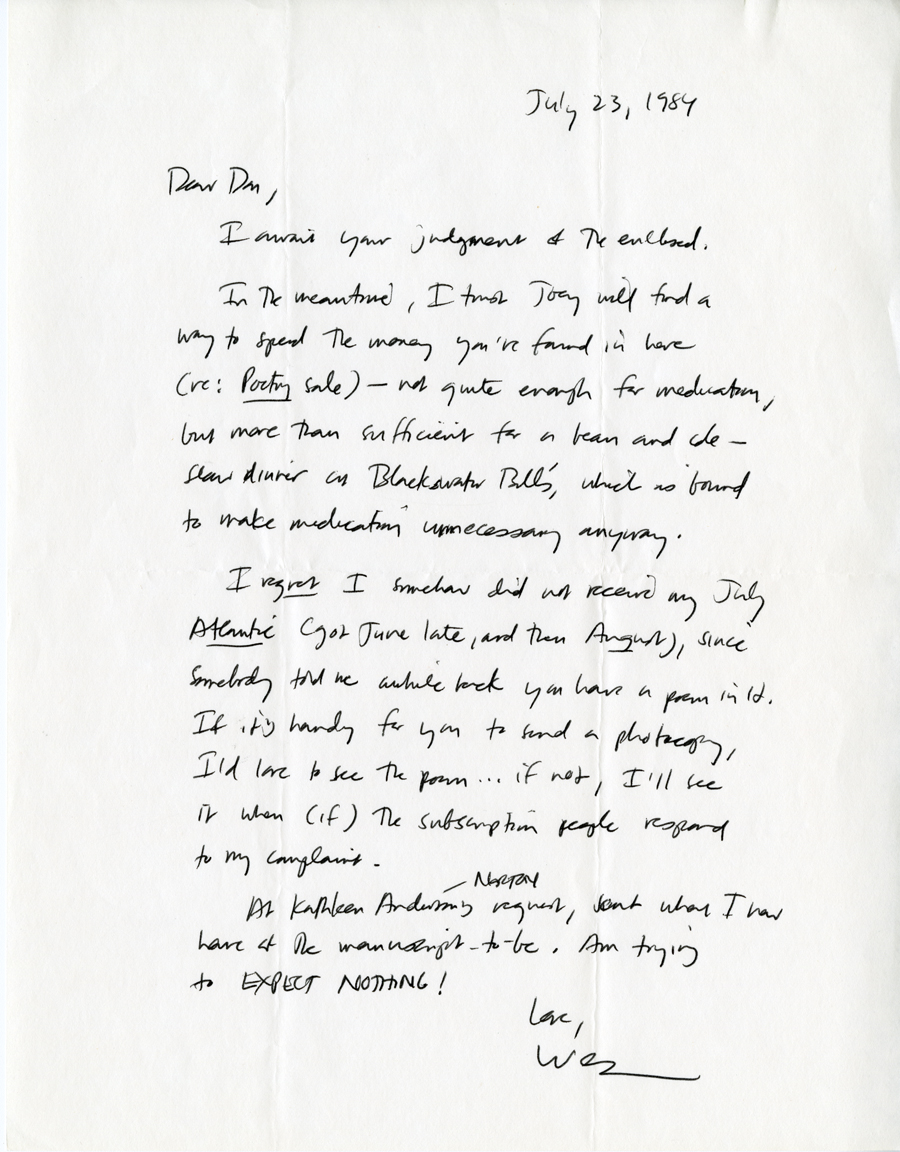 July 23, 1984
Dear Don,
I await your judgment of the enclosed.
In the meantime, I trust Joey will find a
way to spend the money you've found in here
(re: Poetry sale) — not quite enough for medication,
but more than sufficient for a bean and cole-
slaw dinner at Blackwater Bill's, which is bound
to make medication unnecessary anyway.
I regret I somehow did not receive my July
Atlantic (got June late, and then August), since
somebody told me awhile back you have a poem in it.
If it's handy for you to send a photocopy,
I'd love to see the poem... if not, I'll see
it when (if) the subscription people respond
to my complaint.
— NORTON
At Kathleen Anderson's request, sent what I now
have of the manuscript-to-be. Am trying
to EXPECT NOTHING!
Love,
Wes